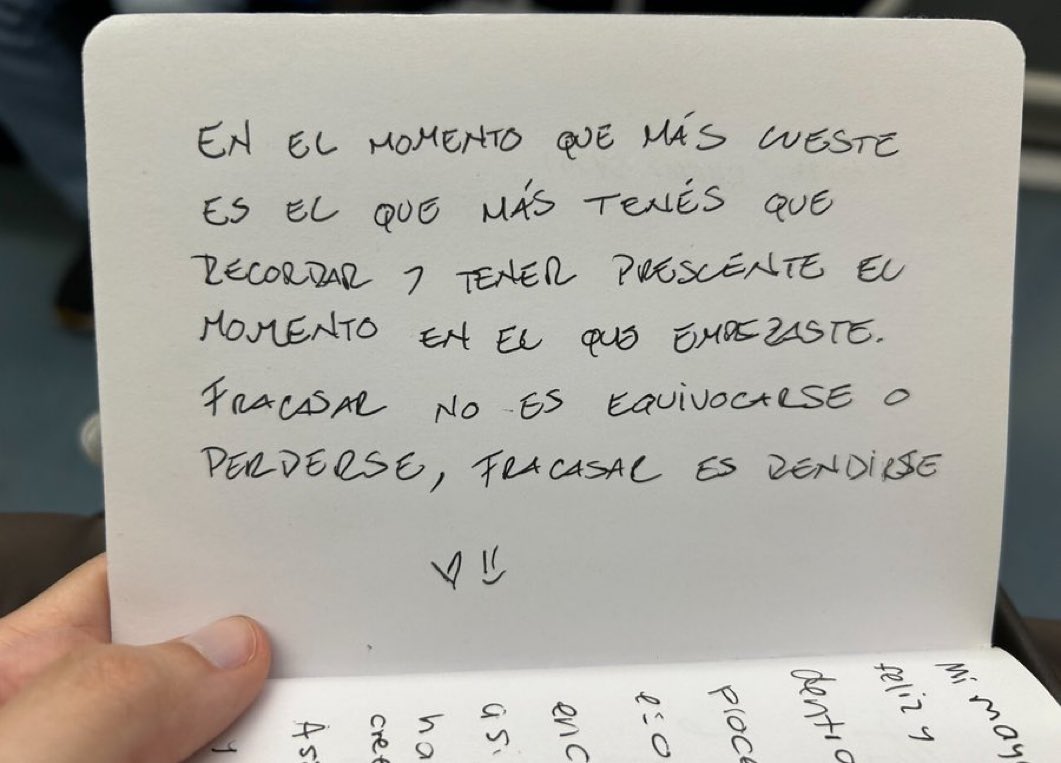 EN EL MOMENTO QUE MÁS CUESTE
ES EL QUE MÁS TENÉS QUE
RECORDAR Y TENER PRESCENTE EL
MOMENTO EN EL QUE EMPEZASTE.
FRACASAR NO ES EQUIVOCARSE O
PERDERSE, FRACASAR ES RENDIRSE
Mi may
feliz y
dentro
proce
eso
enc
así
ha
cree
As
y